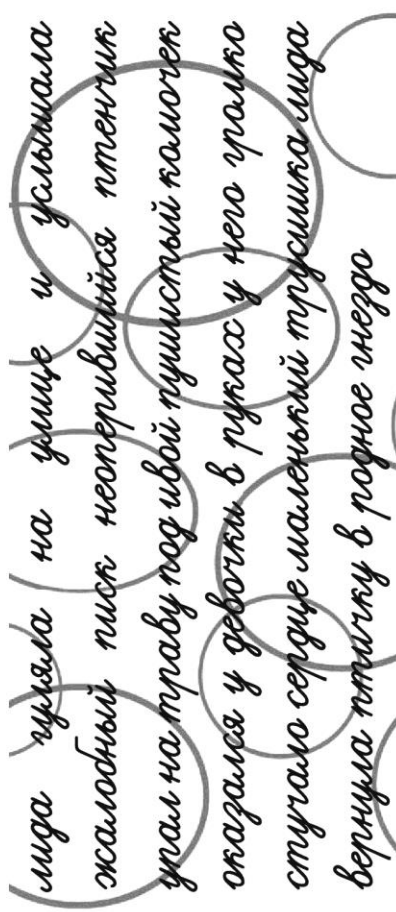 лида гуляла на улице и услышала
жалобный писк неоперившийся птенчик
упал на траву под ивой пушистый комочек
оказался у девочки в руках у него громко
стучало сердце маленький трусишка лида
вернула птичку в родное гнездо